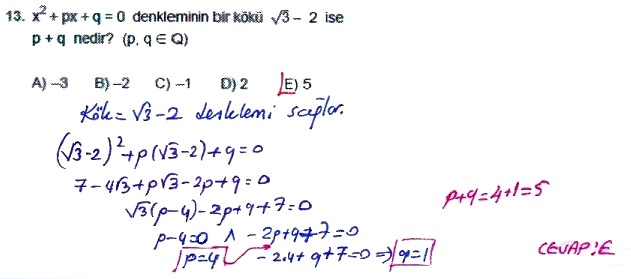 13. x² + px + q = 0 denkleminin bir kökü √3 − 2 ise
p + q nedir? (p, q ∈ Q)
A) −3 B) −2 C) −1 D) 2 E) 5
Kök = √3 − 2 denklemi sağlar.
(√3 − 2)² + p(√3 − 2) + q = 0
7 − 4√3 + p√3 − 2p + q = 0
√3(p − 4) − 2p + q + 7 = 0
p − 4 = 0 ∧ − 2p + q + 7 = 0
p = 4 − 2.4 + q + 7 = 0 ⇒ q = 1
p + q = 4 + 1 = 5
CEVAP: E